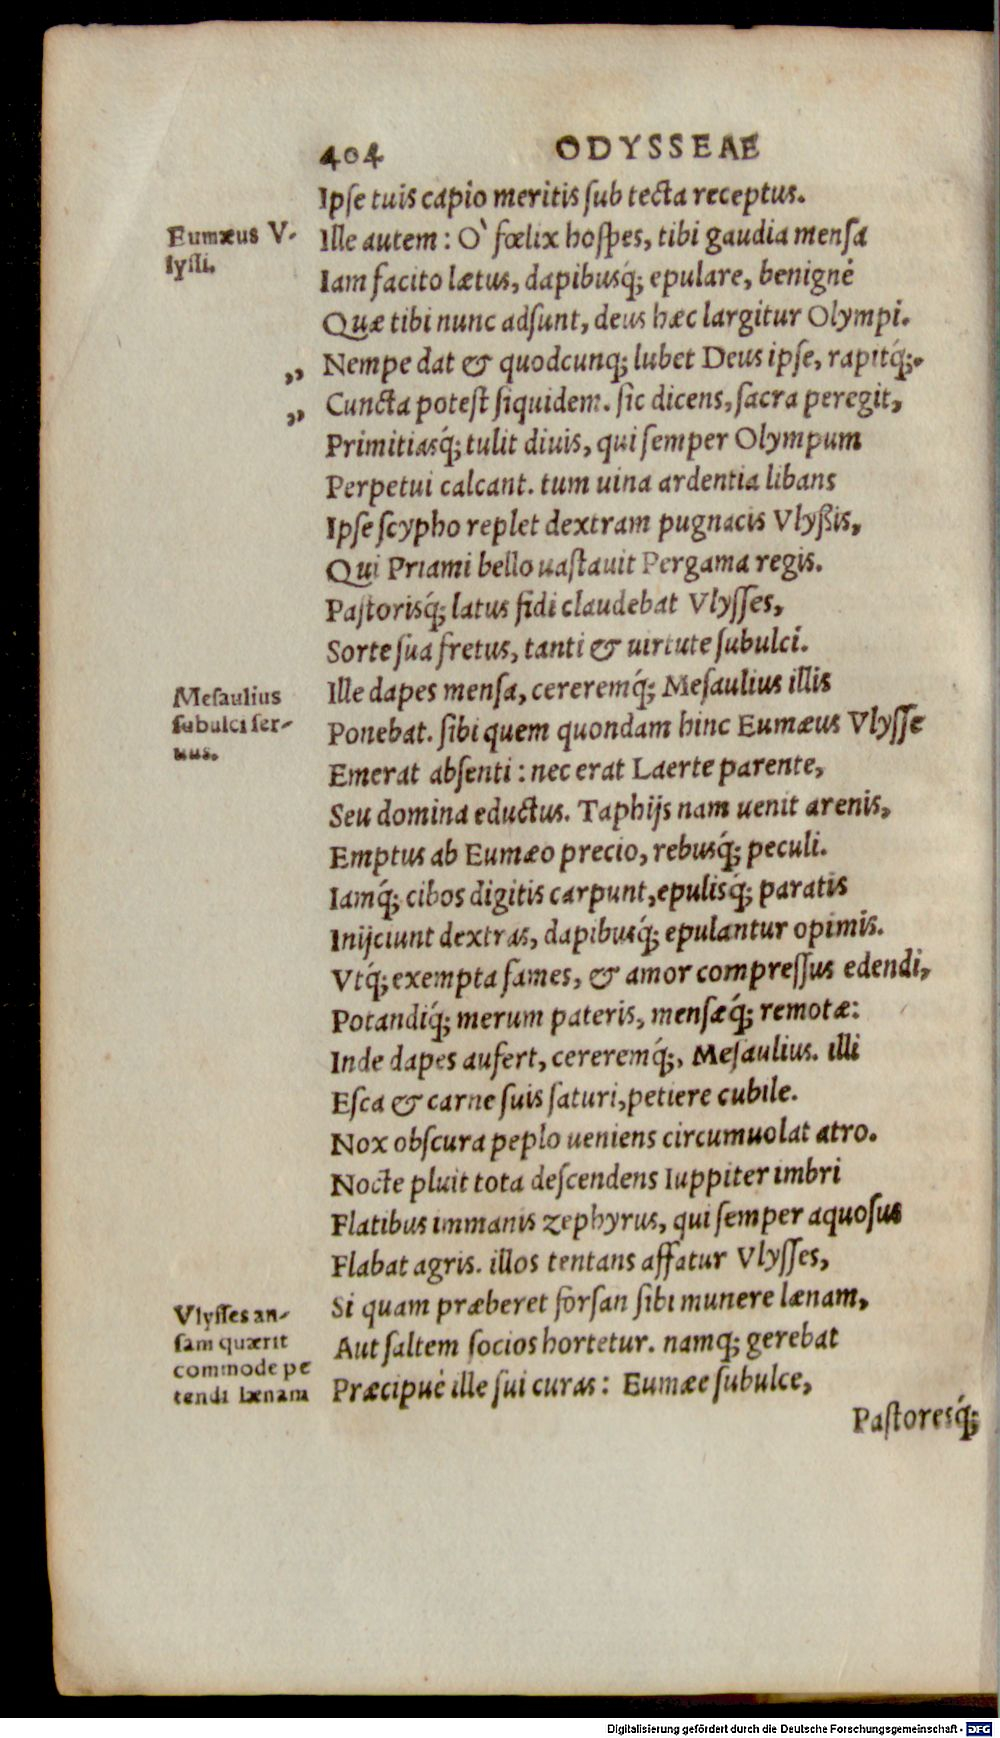 404 ODYSSEAE
Ipſe tuis capio meritis ſub tecta receptus.
Eumæus V-
lyſſi.
Ille autem: O` fœlix hoſpes, tibi gaudia menſa
Iam facito lætus, dapibusq́; epulare, benignè
Quæ tibi nunc adſunt, deus hæc largitur Olympi.
„ Nempe dat & quodcunq; lubet Deus ipſe, rapitq́;.
„ Cuncta poteſt ſiquidem. ſic dicens, ſacra peregit,
Primitiasq́; tulit diuis, qui ſemper Olympum
Perpetui calcant. tum uina ardentia libans
Ipſe ſcypho replet dextram pugnacis Vlyßis,
Qui Priami bello uaſtauit Pergama regis.
Paſtorisq́; latus fidi claudebat Vlyſſes,
Sorte ſua fretus, tanti & uirtute ſubulci.
Meſaulius
ſubulci ſer-
uus.
Ille dapes menſa, cereremq́; Meſaulius illis
Ponebat. ſibi quem quondam hinc Eumæus Vlyſſe
Emerat abſenti: nec erat Laerte parente,
Seu domina eductus. Taphijs nam uenit arenis,
Emptus ab Eumæo precio, rebusq́; peculi.
Iamq́; cibos digitis carpunt, epulisq́; paratis
Inijciunt dextras, dapibusq́; epulantur opimis.
Vtq́; exempta fames, & amor compreſſus edendi,
Potandiq́; merum pateris, menſæq́; remotæ:
Inde dapes aufert, cereremq́;, Meſaulius. illi
Eſca & carne ſuis ſaturi, petiere cubile.
Nox obſcura peplo ueniens circumuolat atro.
Nocte pluit tota deſcendens Iuppiter imbri
Flatibus immanis zephyrus, qui ſemper aquoſus
Flabat agris. illos tentans affatur Vlyſſes,
Vlyſſes an-
ſam quærit
commode pe
tendi lænam
Si quam præberet forſan ſibi munere lænam,
Aut ſaltem ſocios hortetur. namq; gerebat
Præcipuè ille ſui curas: Eumæe ſubulce,
Paſtoresq́;
Digitalisierung gefördert durch die Deutsche Forschungsgemeinschaft - DFG